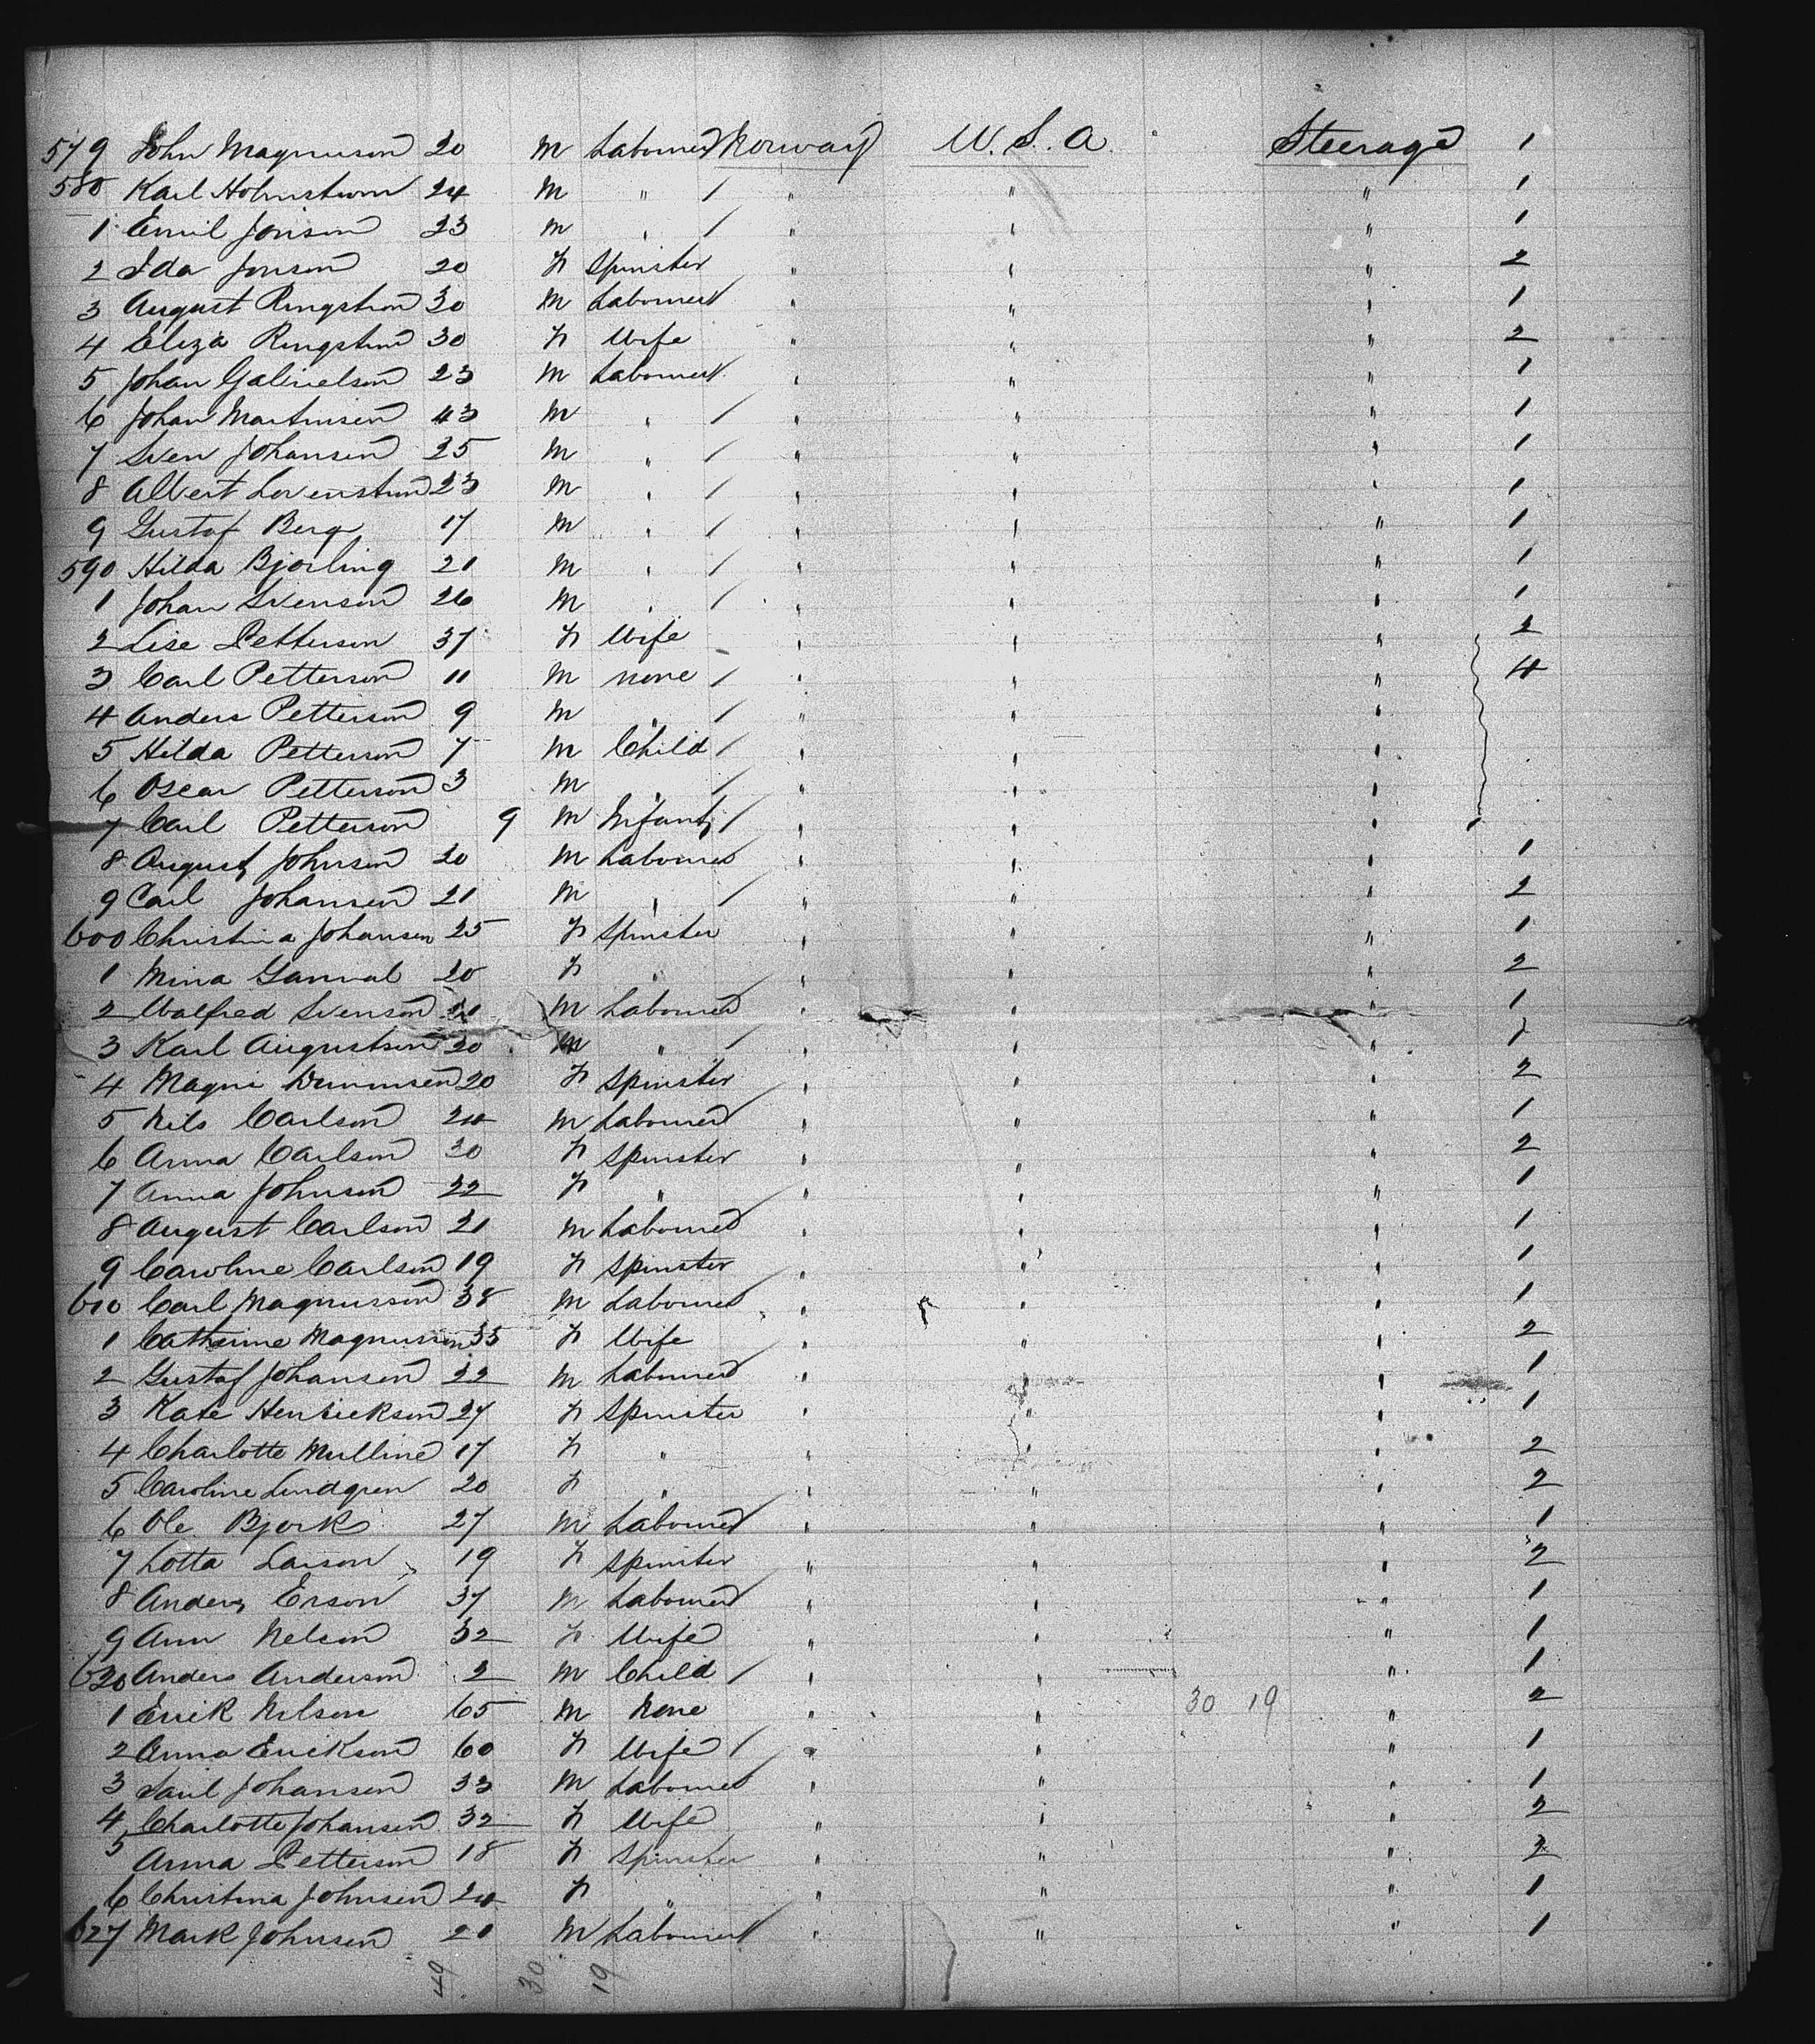 579 John Magnuson 20 M Labourer Norway U.S.A. Steerage 1
580 Karl Holmstrom 24 M " / " " " 1
1 Emil Jonson 23 M " / " " " 1
2 Ida Jonson 20 F Spinster " " " 2
3 August Ringstrom 30 M Labourer " " " 1
4 Eliza Ringstrom 30 F Wife " " " 2
5 Johan Gabrielson 23 M Labourer " " " 1
6 Johan Martinsen 43 M " / " " " 1
7 Sven Johansen 25 M " / " " " 1
8 Albert Lovenstrom 23 M " / " " " 1
9 Gustof Berg 17 M " / " " " 1
590 Hilda Bjorling 21 M " / " " " 1
1 Johan Svenson 26 M " / " " " 1
2 Lise Petterson 37 F Wife " " " 2
3 Carl Petterson 11 M none / " " " 4
4 Anders Petterson 9 M " / " " "
5 Hilda Petterson 7 M Child / " " "
6 Oscar Petterson 3 M " / " " "
7 Carl Petterson 9 M Infant / " " "
8 August Johnson 20 M Labourer " " " 1
9 Carl Johansen 21 M " / " " " 2
600 Christina Johansen 25 F Spinster " " " 1
1 Mina 20 F " " " " 2
2 Walfred Svenson M Labourer " " " 1
3 Karl Augustson 20 M " / " " " 1
4 Magni 20 F Spinster " " " 2
5 Nils Carlson 24 M Labourer " " " 1
6 Anna Carlson 20 F Spinster " " " 2
7 Anna Johnson 22 F " " " " 1
8 August Carlson 21 M Labourer " " " 1
9 Caroline Carlson 19 F Spinster " " " 1
610 Carl Magnusson 38 M Labourer " " " 1
1 Catherine Magnusson 35 F Wife " " " 2
2 Gustaf Johansen 22 M Labourer " " " 1
3 Kate Henrickson 27 F Spinster " " " 1
4 Charlotte Mulline 17 F " " " " 2
5 Caroline Lindgren 20 F " " " " 2
6 Ole Bjork 27 M Labourer " " " 1
7 Lotta Larson 19 F Spinster " " " 2
8 Anders Erson 37 M Labourer " " " 1
9 Ann Nelson 32 F Wife " " " 1
620 Anders Anderson 2 M Child / " " " 1
1 Erick Nilson 65 M None " " 30 19 " 2
2 Anna Erickson 60 F Wife / " " " 1
3 Johansen 33 M Labourer " " " 1
4 Charlotte Johansen 32 F Wife " " " 2
5 Anna Petterson 18 F Spinster " " " 2
6 Christina Johnsen 24 F " " " " 1
627 Mark Johnsen 21 M Labourer " " " 1
49 30 19